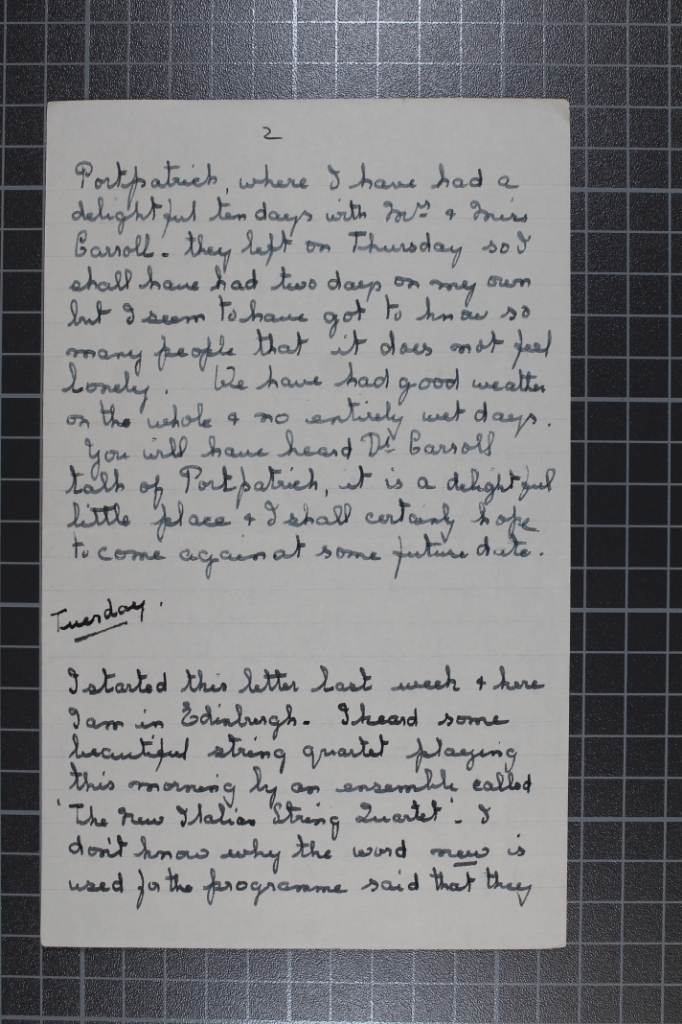 2
Portpatrick, where I have had a
delightful ten days with Mrs & Miss
Carroll. They left on Thursday so I
shall have had two days on my own
but I seem to have got to know so
many people that it does not feel
lonely. We have had good weather
on the whole & no entirely wet days.
You will have heard Dr Carroll
talk of Portpatrick, it is a delightful
little place & I shall certainly hope
to come again at some future date.
Tuesday.
I started this letter last week & here
I am in Edinburgh. I heard some
beautiful string quartet playing
this morning by an ensemble called
'The New Italian String Quartet'. I
don't know why the word new is
used for the programme said that they